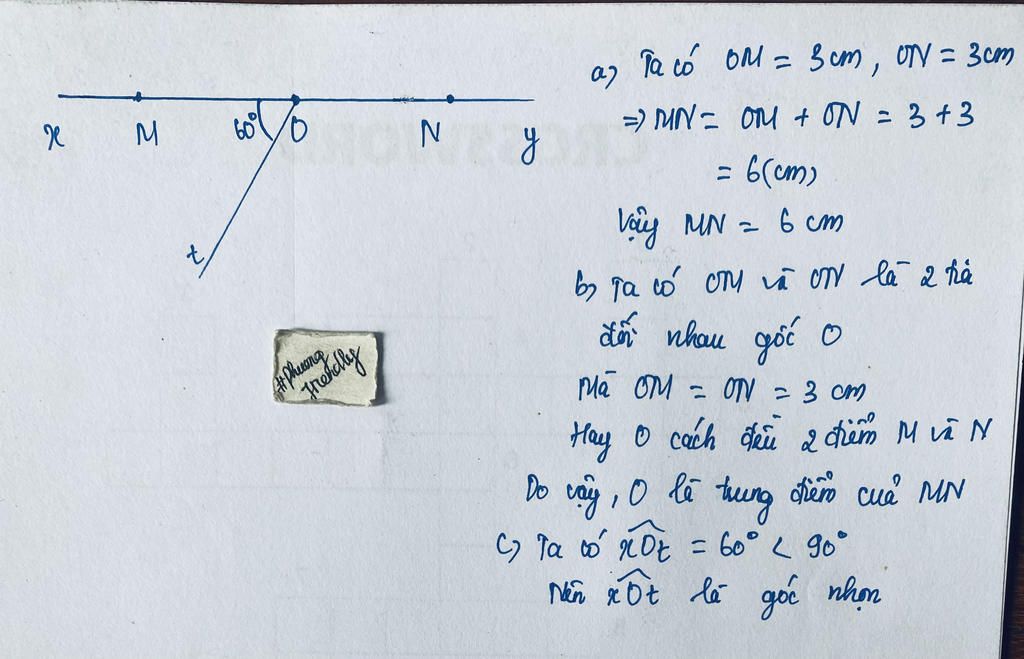 x M 60° O N y
t
#Phuong
friendly
a) Ta có OM = 3cm, ON = 3cm
=> MN = OM + ON = 3 + 3
= 6(cm)
Vậy MN = 6 cm
b) Ta có OM và ON là 2 tia
đối nhau gốc O
Mà OM = ON = 3 cm
Hay O cách đều 2 điểm M và N
Do vậy, O là trung điểm của MN
c) Ta có xOt = 60° < 90°
Nên xOt là góc nhọn
CROSSWORD